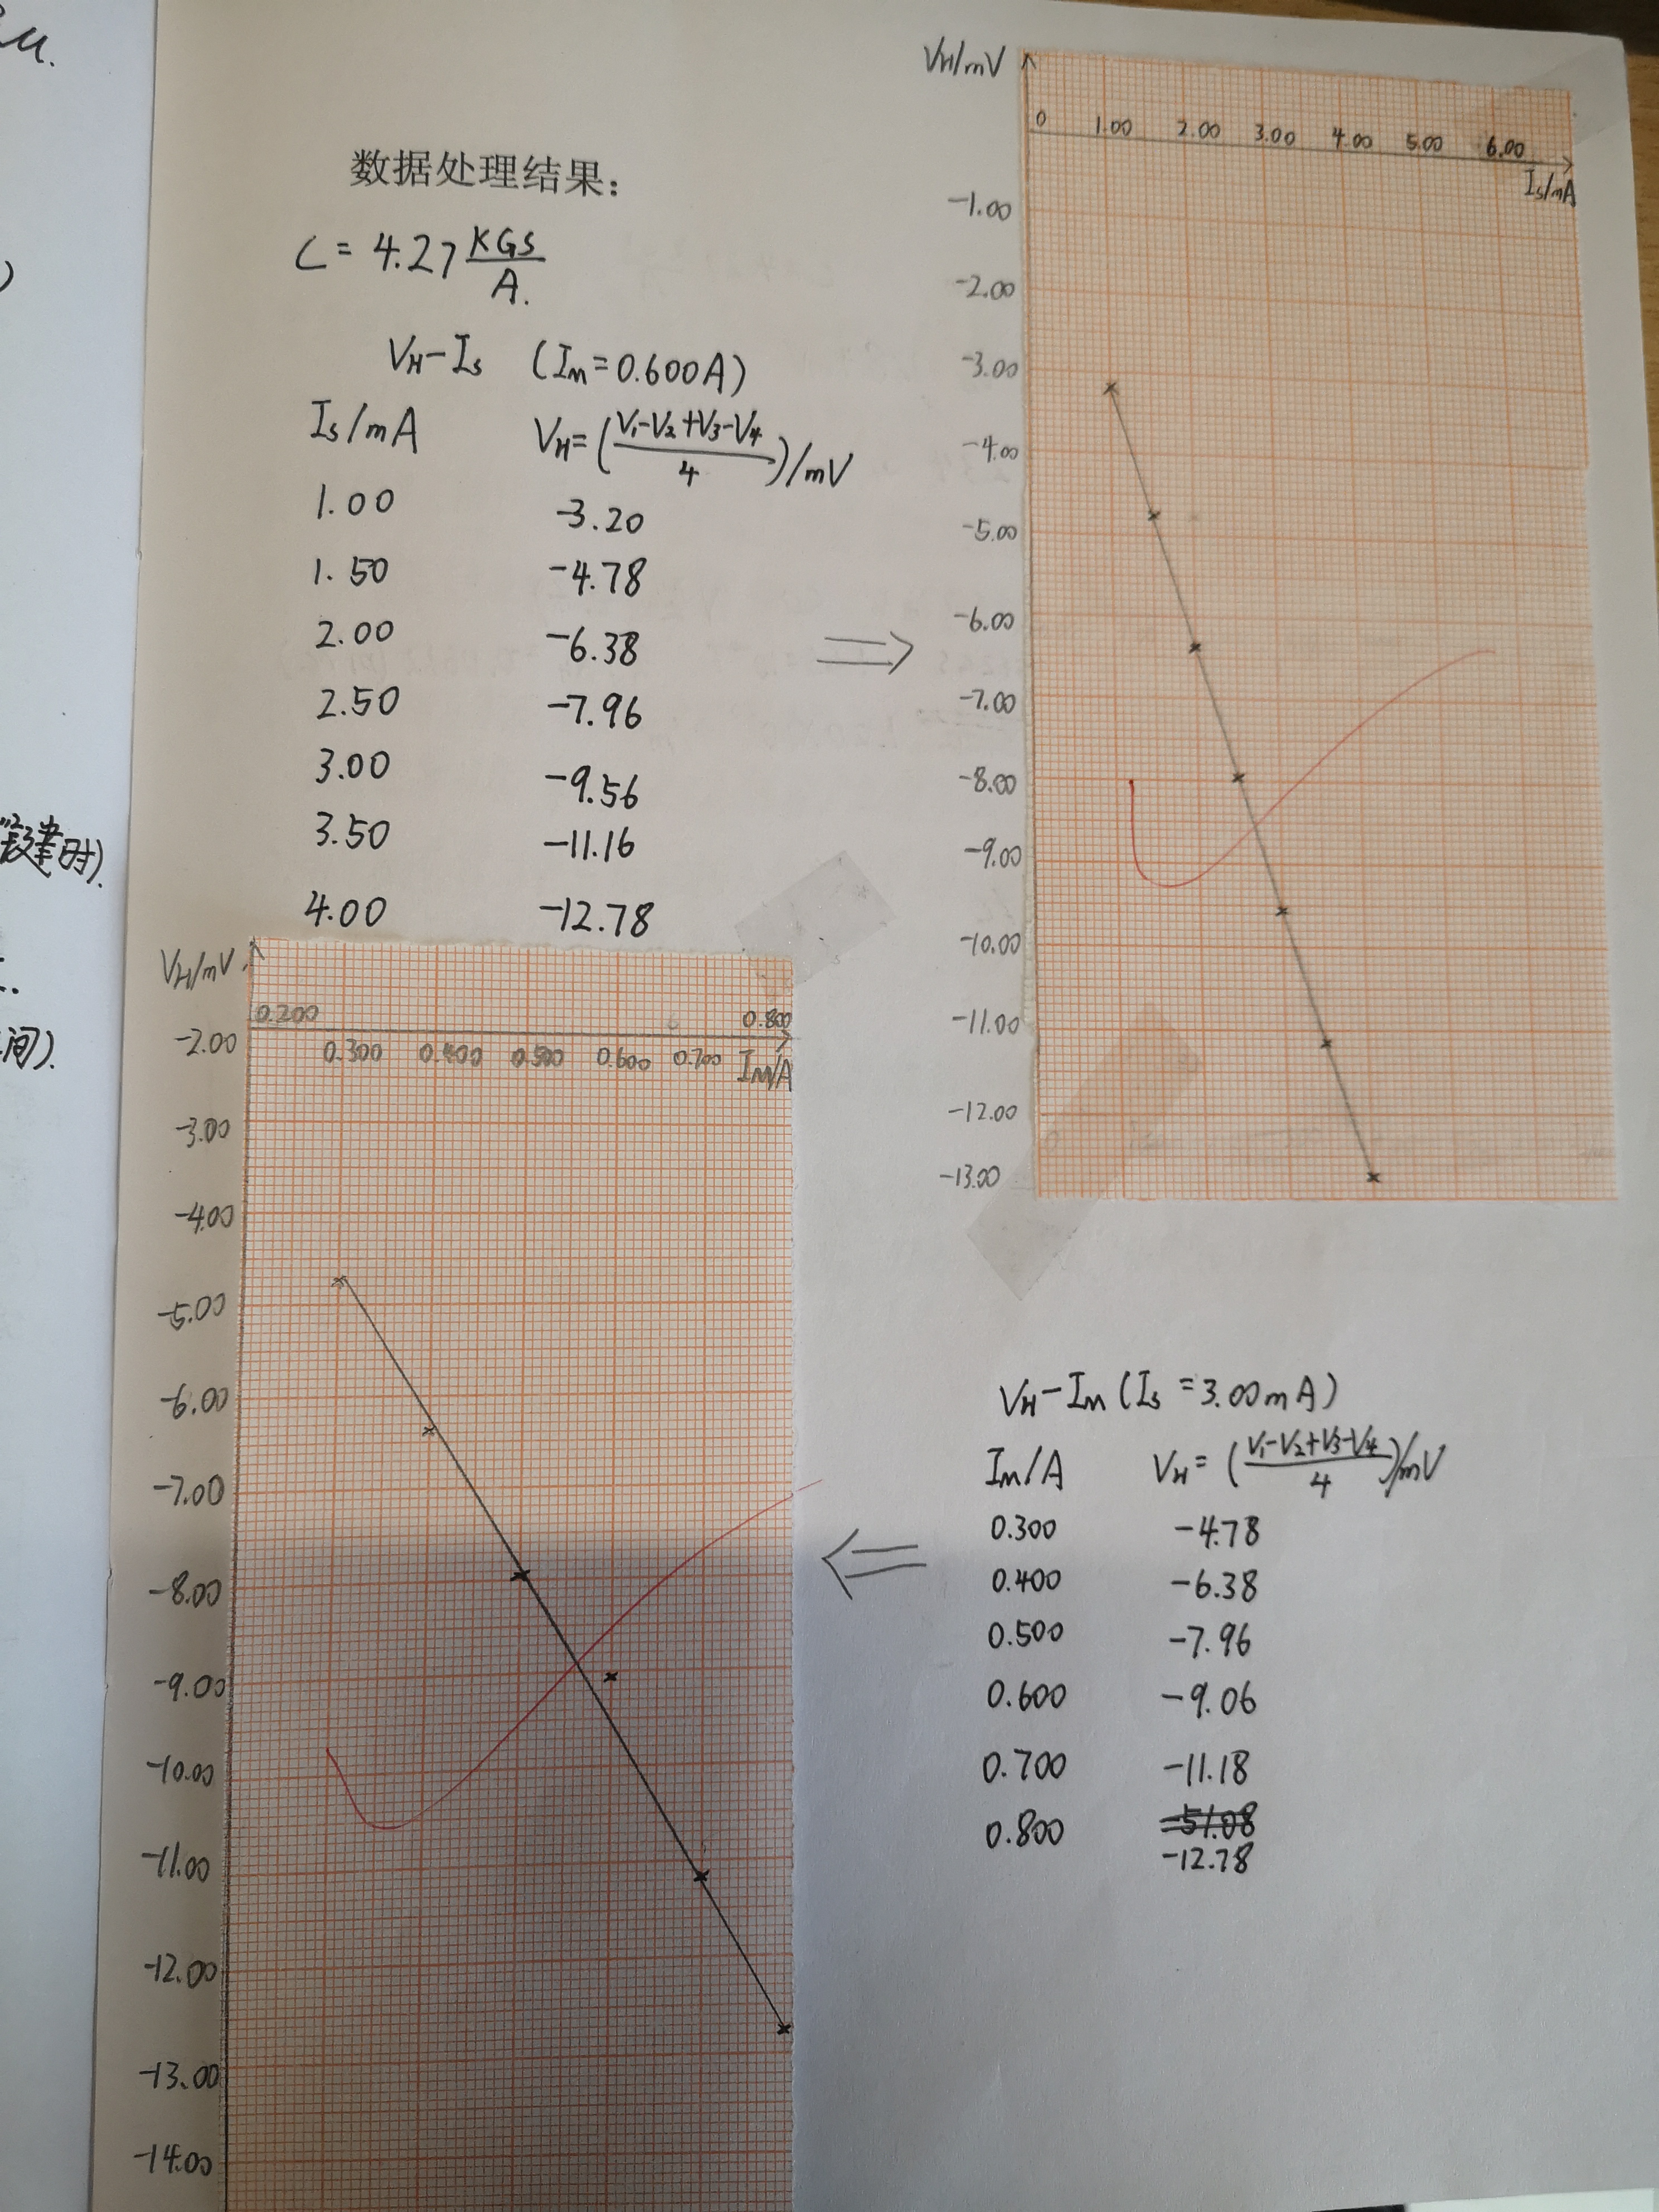 数据处理结果:
C = 4.27 KGS/A.
VH-Is (Im=0.600A)
Is/mA VH=(V1-V2+V3-V4/4)/mV
1.00 -3.20
1.50 -4.78
2.00 -6.38
2.50 -7.96
3.00 -9.56
3.50 -11.16
4.00 -12.78
VH/mV
0 1.00 2.00 3.00 4.00 5.00 6.00
Is/mA
-1.00
-2.00
-3.00
-4.00
-5.00
-6.00
-7.00
-8.00
-9.00
-10.00
-11.00
-12.00
-13.00
VH/mV
0.200 0.800
-2.00 0.300 0.400 0.500 0.600 0.700 Im/A
-3.00
-4.00
-5.00
-6.00
-7.00
-8.00
-9.00
-10.00
-11.00
-12.00
-13.00
-14.00
VH-Im (Is=3.00mA)
Im/A VH=(V1-V2+V3-V4/4)/mV
0.300 -4.78
0.400 -6.38
0.500 -7.96
0.600 -9.06
0.700 -11.18
0.800 -51.08
-12.78
建时).
间).